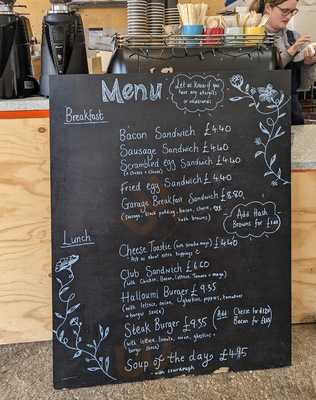 Menu
Let us know if
you have any allergies
or intolerances
Breakfast
Bacon Sandwich £4.40
Sausage Sandwich £4.40
Scrambled egg Sandwich £4.40
(+ Cheese + Chives)
Fried egg Sandwich £4.40
Garage Breakfast Sandwich £8.80
(sausage, black pudding, bacon, cheese, egg
hash browns)
Add Hash
Browns for
Lunch
Cheese Toastie £4.40
Ask us about extra toppings
Club Sandwich
(with Chicken, Bacon, Lettuce, Tomato + mayo)
Halloumi Burger £9.35
(with lettuce, onion, peppers, tomatoes
+ burger sauce)
Steak Burger £9.35
(with lettuce, tomato, onion, gherkins +
burger sauce)
(Add Cheese for
Bacon for
Soup of the day £4.95
with sourdough